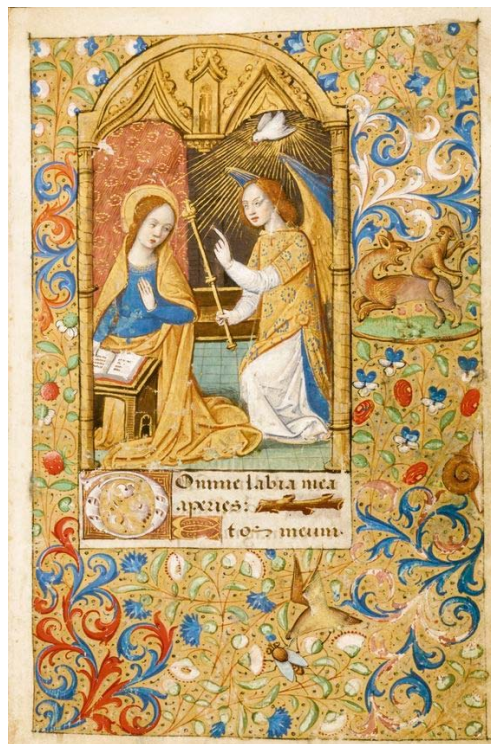 Domine labia mea
aperies:
Et os meum.